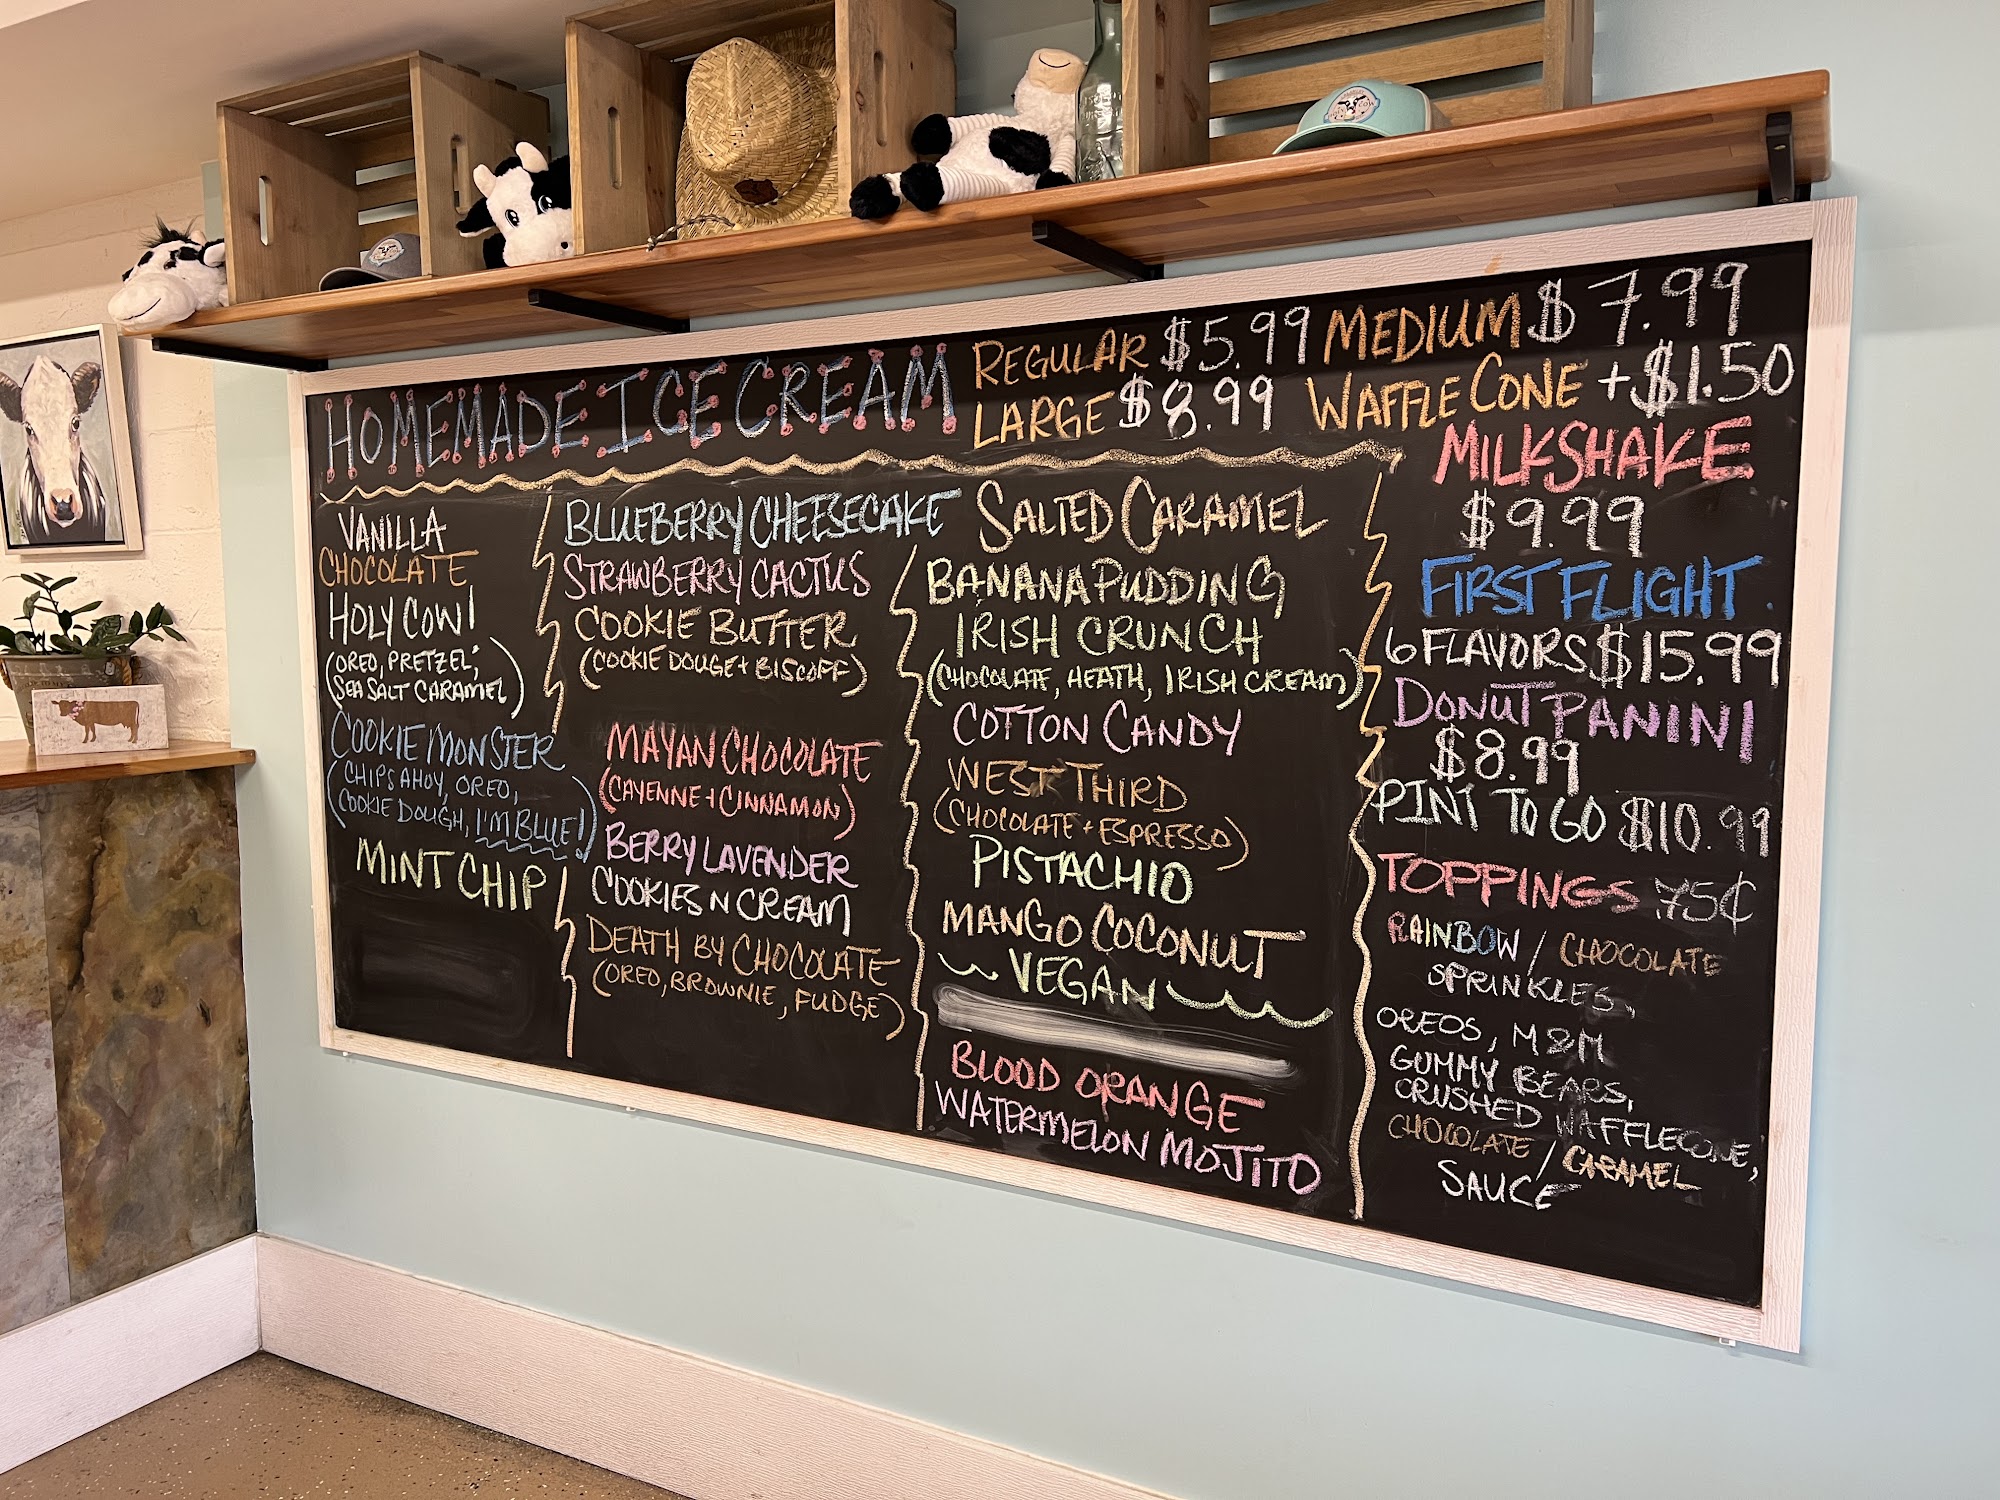 HOMEMADE ICE CREAM
REGULAR $5.99 MEDIUM $7.99
LARGE $8.99 WAFFLE CONE +$1.50
VANILLA
CHOCOLATE
HOLY COW!
(OREO, PRETZEL,
SEA SALT CARAMEL)
COOKIE MONSTER
(CHIPS AHOY, OREO,
COOKIE DOUGH, I'M BLUE!)
MINT CHIP
BLUEBERRY CHEESECAKE
STRAWBERRY CACTUS
COOKIE BUTTER
(COOKIE DOUGE + BISCOFF)
MAYAN CHOCOLATE
(CAYENNE + CINNAMON)
BERRY LAVENDER
COOKIES N CREAM
DEATH BY CHOCOLATE
(OREO, BROWNIE, FUDGE)
SALTED CARAMEL
BANANA PUDDING
IRISH CRUNCH
(CHOCOLATE, HEATH, IRISH CREAM)
COTTON CANDY
WEST THIRD
(CHOCOLATE + ESPRESSO)
PISTACHIO
MANGO COCONUT
VEGAN
BLOOD ORANGE
WATERMELON MOJITO
MILKSHAKE
$9.99
FIRST FLIGHT
6 FLAVORS $15.99
DONUT PANINI
$8.99
PINT TO GO $10.99
TOPPINGS .75¢
RAINBOW / CHOCOLATE
SPRINKLES,
OREOS, M&M
GUMMY BEARS,
CRUSHED WAFFLECONE,
CHOCOLATE / CARAMEL
SAUCE